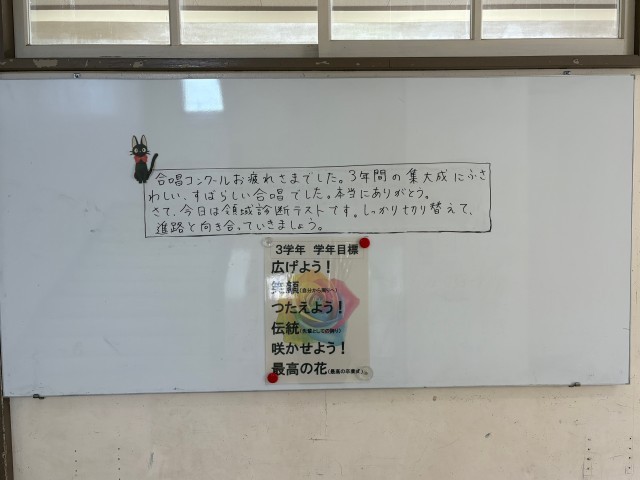 合唱コンクールお疲れさまでした。3年間の集大成にふさ
わしい、すばらしい合唱でした。本当にありがとう。
さて、今日は領域診断テストです。しっかり切り替えて、
進路と向き合っていきましょう。
3学年 学年目標
広げよう!
笑顔(自分から周りへ)
つたえよう!
伝統(先輩としての誇り)
咲かせよう!
最高の花(最高の卒業式)